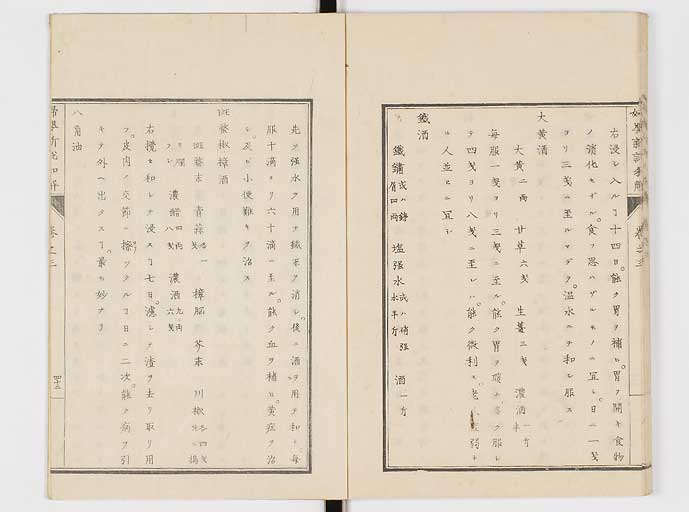 右浸シ入ルヿ十四日能ク胃ヲ補ヒ胃ヲ開キ食物
ノ消化セザル食ヲ思ハザルモノニ宜シ日ニ一戔
ヨリ三戔ニ至ルマデヲ温水ニテ和シ服ス
大黄酒
大黄二両 甘草六戔 生薑三戔 濃酒一方半
毎服一戔ヨリ三戔ニ至ル能ク胃ヲ シ ク服シ
テ四戔ヨリ八戔ニ至レハ能ク微利ス老 虚弱ナ
ル人並ヒニ宜シ
鐵酒
鐵鏽 或ハ鋒屑四両 塩强水 或ハ硝强水半斤 酒一方
先ツ强水ヲ用テ鐵末ヲ消シ後ニ酒ヲ用テ和シ毎
服十滴ヨリ六十滴ニ至ル能ク血ヲ補ヒ黄症ヲ治
シ及ヒ小便難キヲ治ス
斑蝥椒樟酒
斑蝥末 青蒜各一戔 樟脳 芥末 川椒各四戔
濃醋四両八戔 濃酒九両六戔
右攪セ和シテ浸スヿ七日濾シテ渣ヲ去リ取リ用
フ皮肉ノ交節ニ擦ツクルヿ日ニ二次能ク病ヲ引
キテ外ヘ出タスヿ最モ妙ナリ
八角油
卷之三
四十二